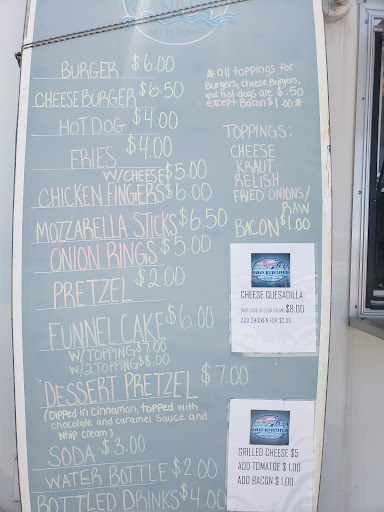 BURGER $6.00
CHEESE BURGER $6.50
HOT DOG $4.00
FRIES $4.00
W/CHEESE $5.00
CHICKEN FINGERS $6.00
MOZZARELLA STICKS $6.50
ONION RINGS $5.00
PRETZEL $2.00
FUNNEL CAKE $6.00
W/TOPPING $7.00
W/2 TOPPING $8.00
DESSERT PRETZEL $7.00
(Dipped in cinnamon, topped with
chocolate and caramel sauce and
whip cream)
SODA $3.00
WATER BOTTLE $2.00
BOTTLED DRINKS $4.00
* all toppings for
Burgers, Cheese Burgers,
and hot dogs are $.50
except Bacon $1.00 *
TOPPINGS:
CHEESE
KRAUT
RELISH
FRIED ONIONS/
RAW
BACON $1.00
CHEESE QUESADILLA
$8.00
ADD CHICKEN FOR $2.00
GRILLED CHEESE $5
ADD TOMATOE $ 1.00
ADD BACON $ 1.00